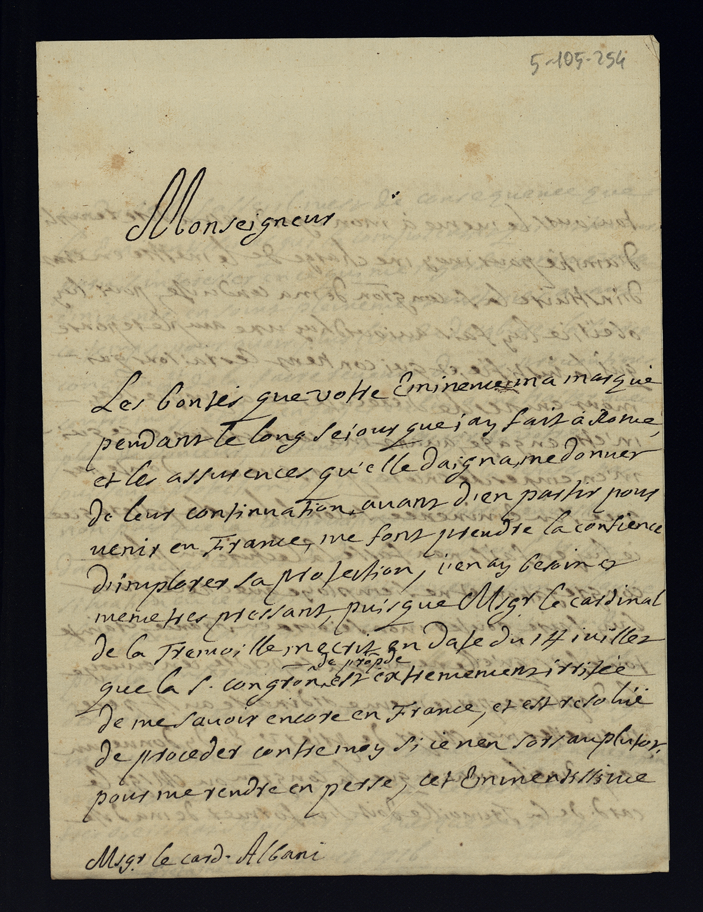 5-105-254
Monseigneur
Les bontés que votre Eminence m'a marqué
pendant le long sejour que j'ay fait à Rome,
et les assurences qu'elle daigna me donner
de leur continuation, avant d'en partir pour
venir en France, me font prendre la confience
d'implorer sa protection, j'en ay besoin et
meme tres pressant, puisque Msgr le cardinal
de la Tremoille m'ecrit en date du 14 juillet
que la s. congron de propde est extremement irritée
de me savoir encore en France, et est resoluë
de proceder contre moy si je n'en sors au plutot.
pour me rendre en perse, cet Eminentissime
Msgr le card. Albani